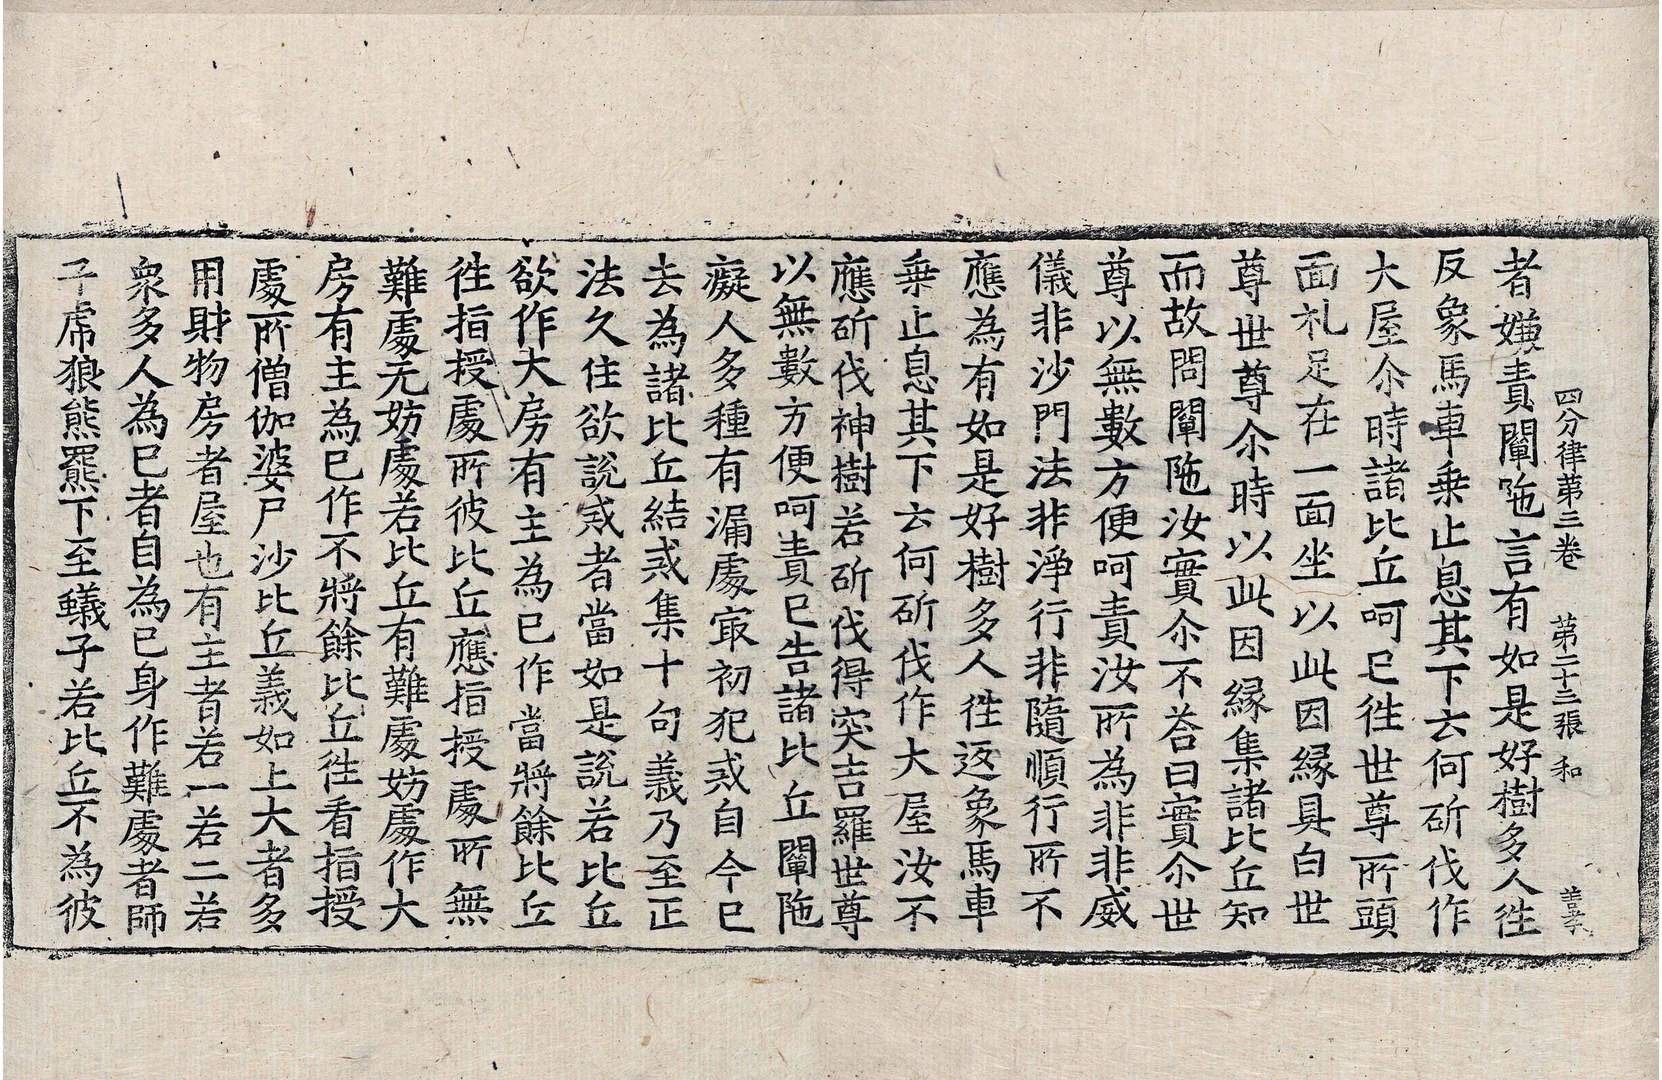 四分律第三卷 第二十三張 和
者嫌責闡陁言有如是好樹多人徃
反象馬車乗止息其下云何斫伐作
大屋尒時諸比丘呵已徃世尊所頭
面礼足在一面坐以此因縁具白世
尊世尊尒時以此因縁集諸比丘知
而故問闡陁汝實尒不荅曰實尒世
尊以無數方便呵責汝所為非非威
儀非沙門法非淨行非隨順行所不
應為有如是好樹多人徃返象馬車
乗止息其下云何斫伐作大屋汝不
應斫伐神樹若斫伐得突吉羅世尊
以無數方便呵責已告諸比丘闡陁
癡人多種有漏處冣初犯戒自今已
去為諸比丘結戒集十句義乃至正
法久住欲說戒者當如是說若比丘
欲作大房有主為已作當將餘比丘
徃指授處所彼比丘應指授處所無
難處无妨處若比丘有難處妨處作大
房有主為已作不將餘比丘徃看指授
處所僧伽婆尸沙比丘義如上大者多
用財物房者屋也有主者若一若二若
衆多人為已者自為已身作難處者師
子虎狼熊羆下至蟻子若比丘不為彼